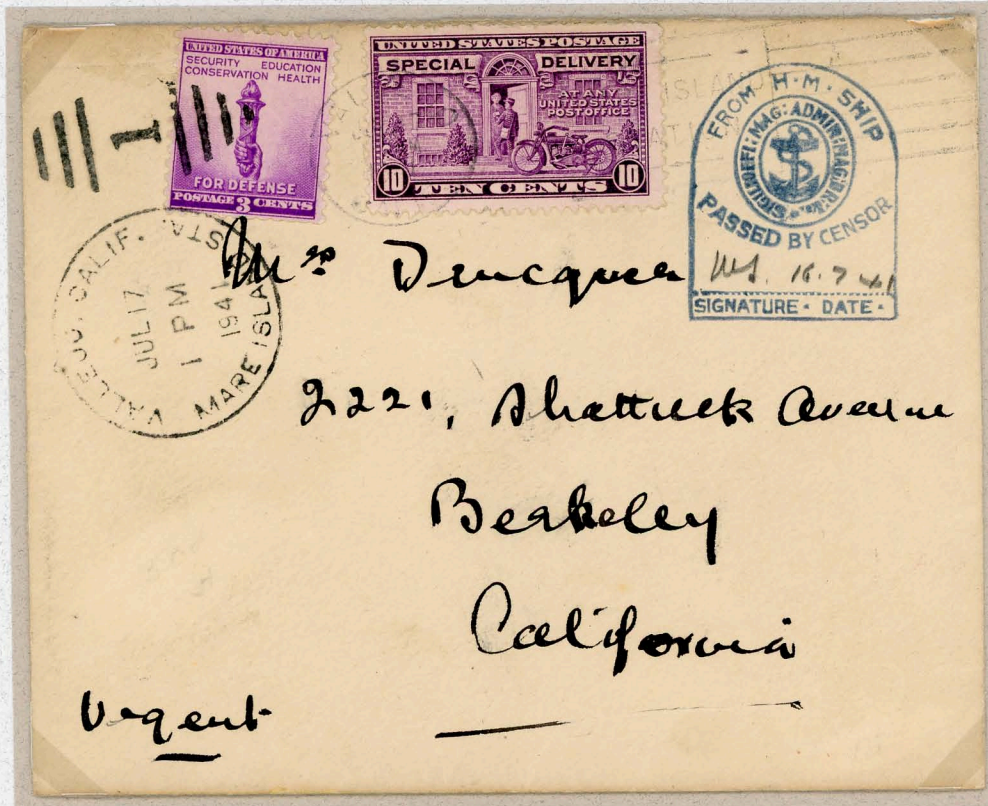 UNITED STATES OF AMERICA
SECURITY EDUCATION
CONSERVATION HEALTH
FOR DEFENSE
POSTAGE 3 CENTS
UNITED STATES POSTAGE
SPECIAL DELIVERY
AT ANY
UNITED STATES
POST OFFICE
10 TEN CENTS 10
FROM H·M·SHIP
PASSED BY CENSOR
16.7.41
SIGNATURE · DATE ·
1
VALLEJO, CALIF.
MARE ISLAND STA.
JUL 17
1 PM
1941
Mrs Drucquer
2221, Shattuck Avenue
Berkeley
California
Urgent